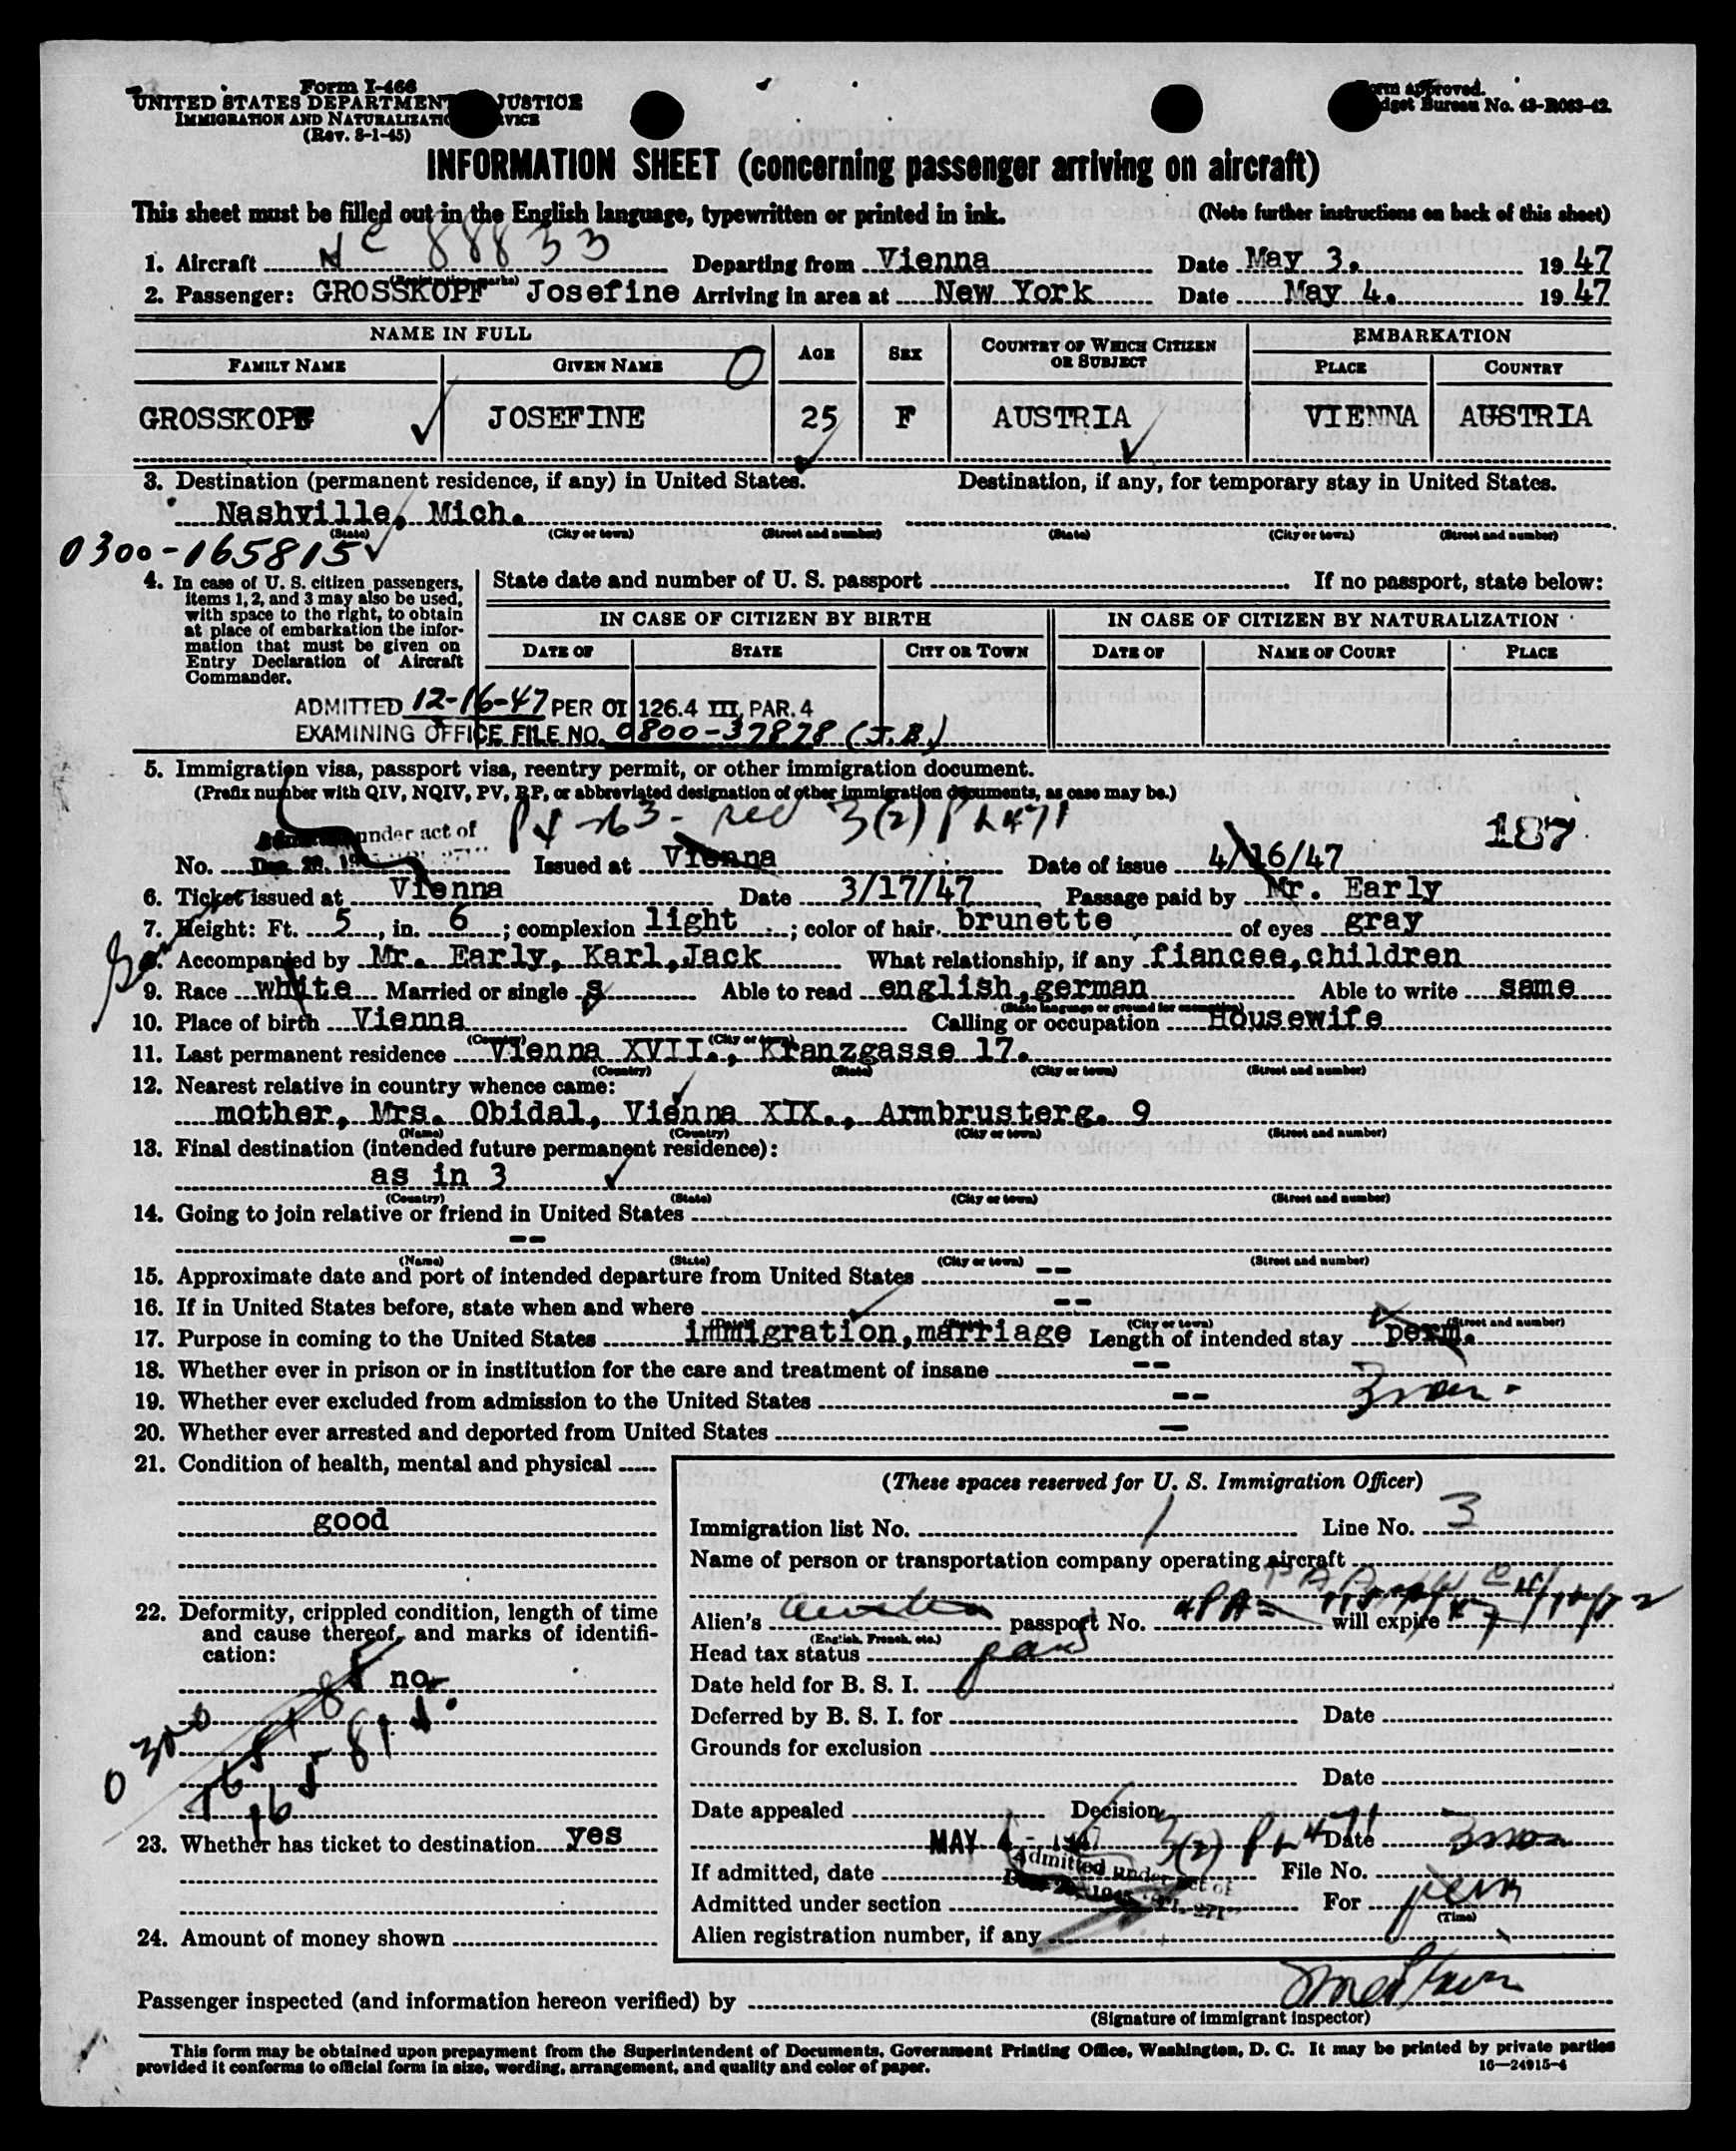 Form I-466
UNITED STATES DEPARTMENT JUSTICE
IMMIGRATION AND NATURALIZATION SERVICE
(Rev. 8-1-45)
Form approved.
Budget Bureau No. 43-R063-42.
INFORMATION SHEET (concerning passenger arriving on aircraft)
This sheet must be filled out in the English language, typewritten or printed in ink. (Note further instructions on back of this sheet)
1. Aircraft NC 88833 Departing from Vienna Date May 3. 1947
(Registration marks)
2. Passenger: GROSSKOPF Josefine Arriving in area at New York Date May 4. 1947
NAME IN FULL AGE SEX COUNTRY OF WHICH CITIZEN OR SUBJECT EMBARKATION
FAMILY NAME GIVEN NAME PLACE COUNTRY
GROSSKOPF JOSEFINE 25 F AUSTRIA VIENNA AUSTRIA
3. Destination (permanent residence, if any) in United States. Destination, if any, for temporary stay in United States.
Nashville, Mich.
(State) (City or town) (Street and number) (State) (City or town) (Street and number)
0300-165815
4. In case of U. S. citizen passengers, items 1, 2, and 3 may also be used, with space to the right, to obtain at place of embarkation the information that must be given on Entry Declaration of Aircraft Commander.
State date and number of U. S. passport If no passport, state below:
IN CASE OF CITIZEN BY BIRTH IN CASE OF CITIZEN BY NATURALIZATION
DATE OF STATE CITY OR TOWN DATE OF NAME OF COURT PLACE
ADMITTED 12-16-47 PER OI 126.4 III, PAR. 4
EXAMINING OFFICE FILE NO. 0800-37878 (J.B.)
5. Immigration visa, passport visa, reentry permit, or other immigration document.
(Prefix number with QIV, NQIV, PV, RP, or abbreviated designation of other immigration documents, as case may be.)
under act of 3(2) PL 471 187
No. Issued at Vienna Date of issue 4/16/47
6. Ticket issued at Vienna Date 3/17/47 Passage paid by Mr. Early
7. Height: Ft. 5, in. 6; complexion light; color of hair brunette of eyes gray
8. Accompanied by Mr. Early, Karl, Jack What relationship, if any fiancee, children
9. Race White Married or single s Able to read english, german Able to write same
(State language or ground for exemption)
10. Place of birth Vienna Calling or occupation Housewife
(Country) (City or town)
11. Last permanent residence Vienna XVII., Kranzgasse 17.
(Country) (State) (City or town) (Street and number)
12. Nearest relative in country whence came:
mother, Mrs. Obidal, Vienna XIX., Armbrusterg. 9
(Name) (Country) (City or town) (Street and number)
13. Final destination (intended future permanent residence):
as in 3
(Country) (State) (City or town) (Street and number)
14. Going to join relative or friend in United States
--
(Name) (State) (City or town) (Street and number)
15. Approximate date and port of intended departure from United States --
16. If in United States before, state when and where --
(Date) (State) (City or town) (Street and number)
17. Purpose in coming to the United States immigration, marriage Length of intended stay perm.
18. Whether ever in prison or in institution for the care and treatment of insane --
19. Whether ever excluded from admission to the United States --
20. Whether ever arrested and deported from United States --
21. Condition of health, mental and physical
good
22. Deformity, crippled condition, length of time and cause thereof, and marks of identification:
no
0300
165-811
23. Whether has ticket to destination yes
24. Amount of money shown
(These spaces reserved for U. S. Immigration Officer)
Immigration list No. 1 Line No. 3
Name of person or transportation company operating aircraft
PAA
Alien's passport No. will expire
(English, French, etc.)
Head tax status
Date held for B. S. I.
Deferred by B. S. I. for Date
Grounds for exclusion
Date
Date appealed Decision
MAY 4 - 1947 3(2) PL 471 Date 3 mos
If admitted, date File No.
Admitted under act of
Admitted under section For perm
(Time)
Alien registration number, if any
Passenger inspected (and information hereon verified) by
(Signature of immigrant inspector)
This form may be obtained upon prepayment from the Superintendent of Documents, Government Printing Office, Washington, D. C. It may be printed by private parties
provided it conforms to official form in size, wording, arrangement, and quality and color of paper. 16—24915-4